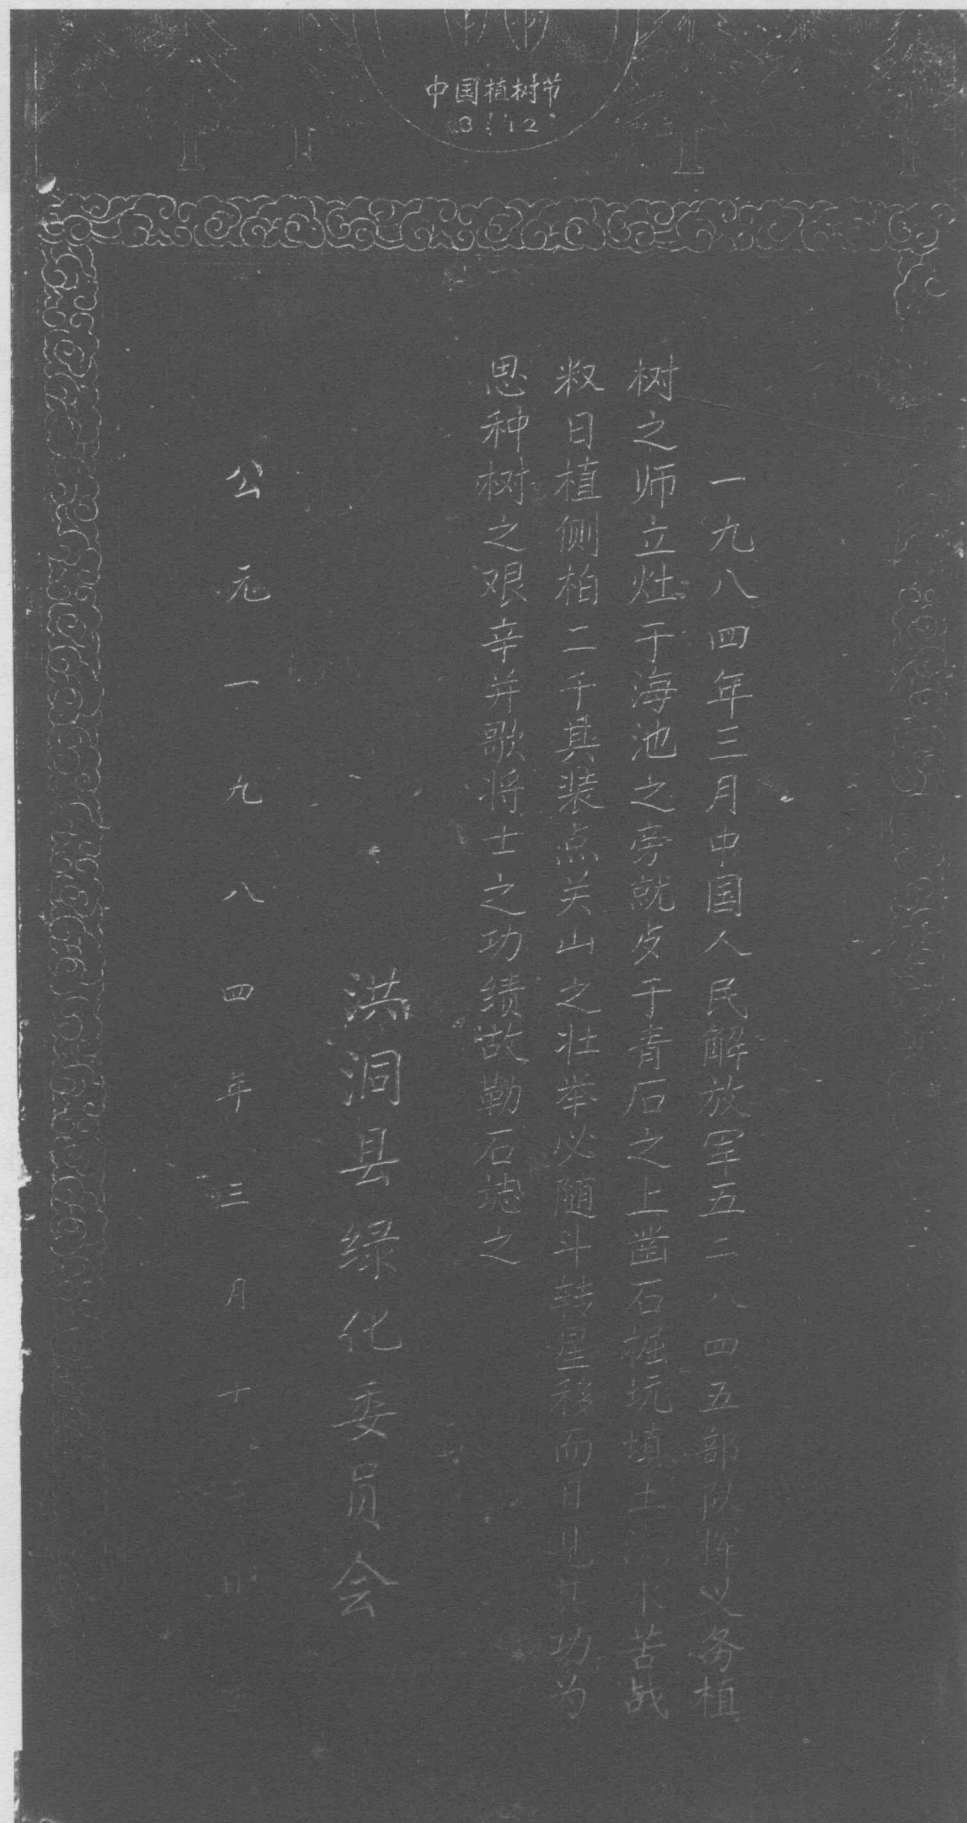 中国植树节
3.12
一九八四年三月中国人民解放军五二八四五部队挥义务植
树之师立灶于海池之旁就炊于青石之上凿石掘坑填土苦战
数日植侧柏二千其装点关山之壮举必随斗转星移而日见其功为
思种树之艰辛并歌将士之功绩故勒石志之
洪洞县绿化委员会
公元一九八四年三月十二日